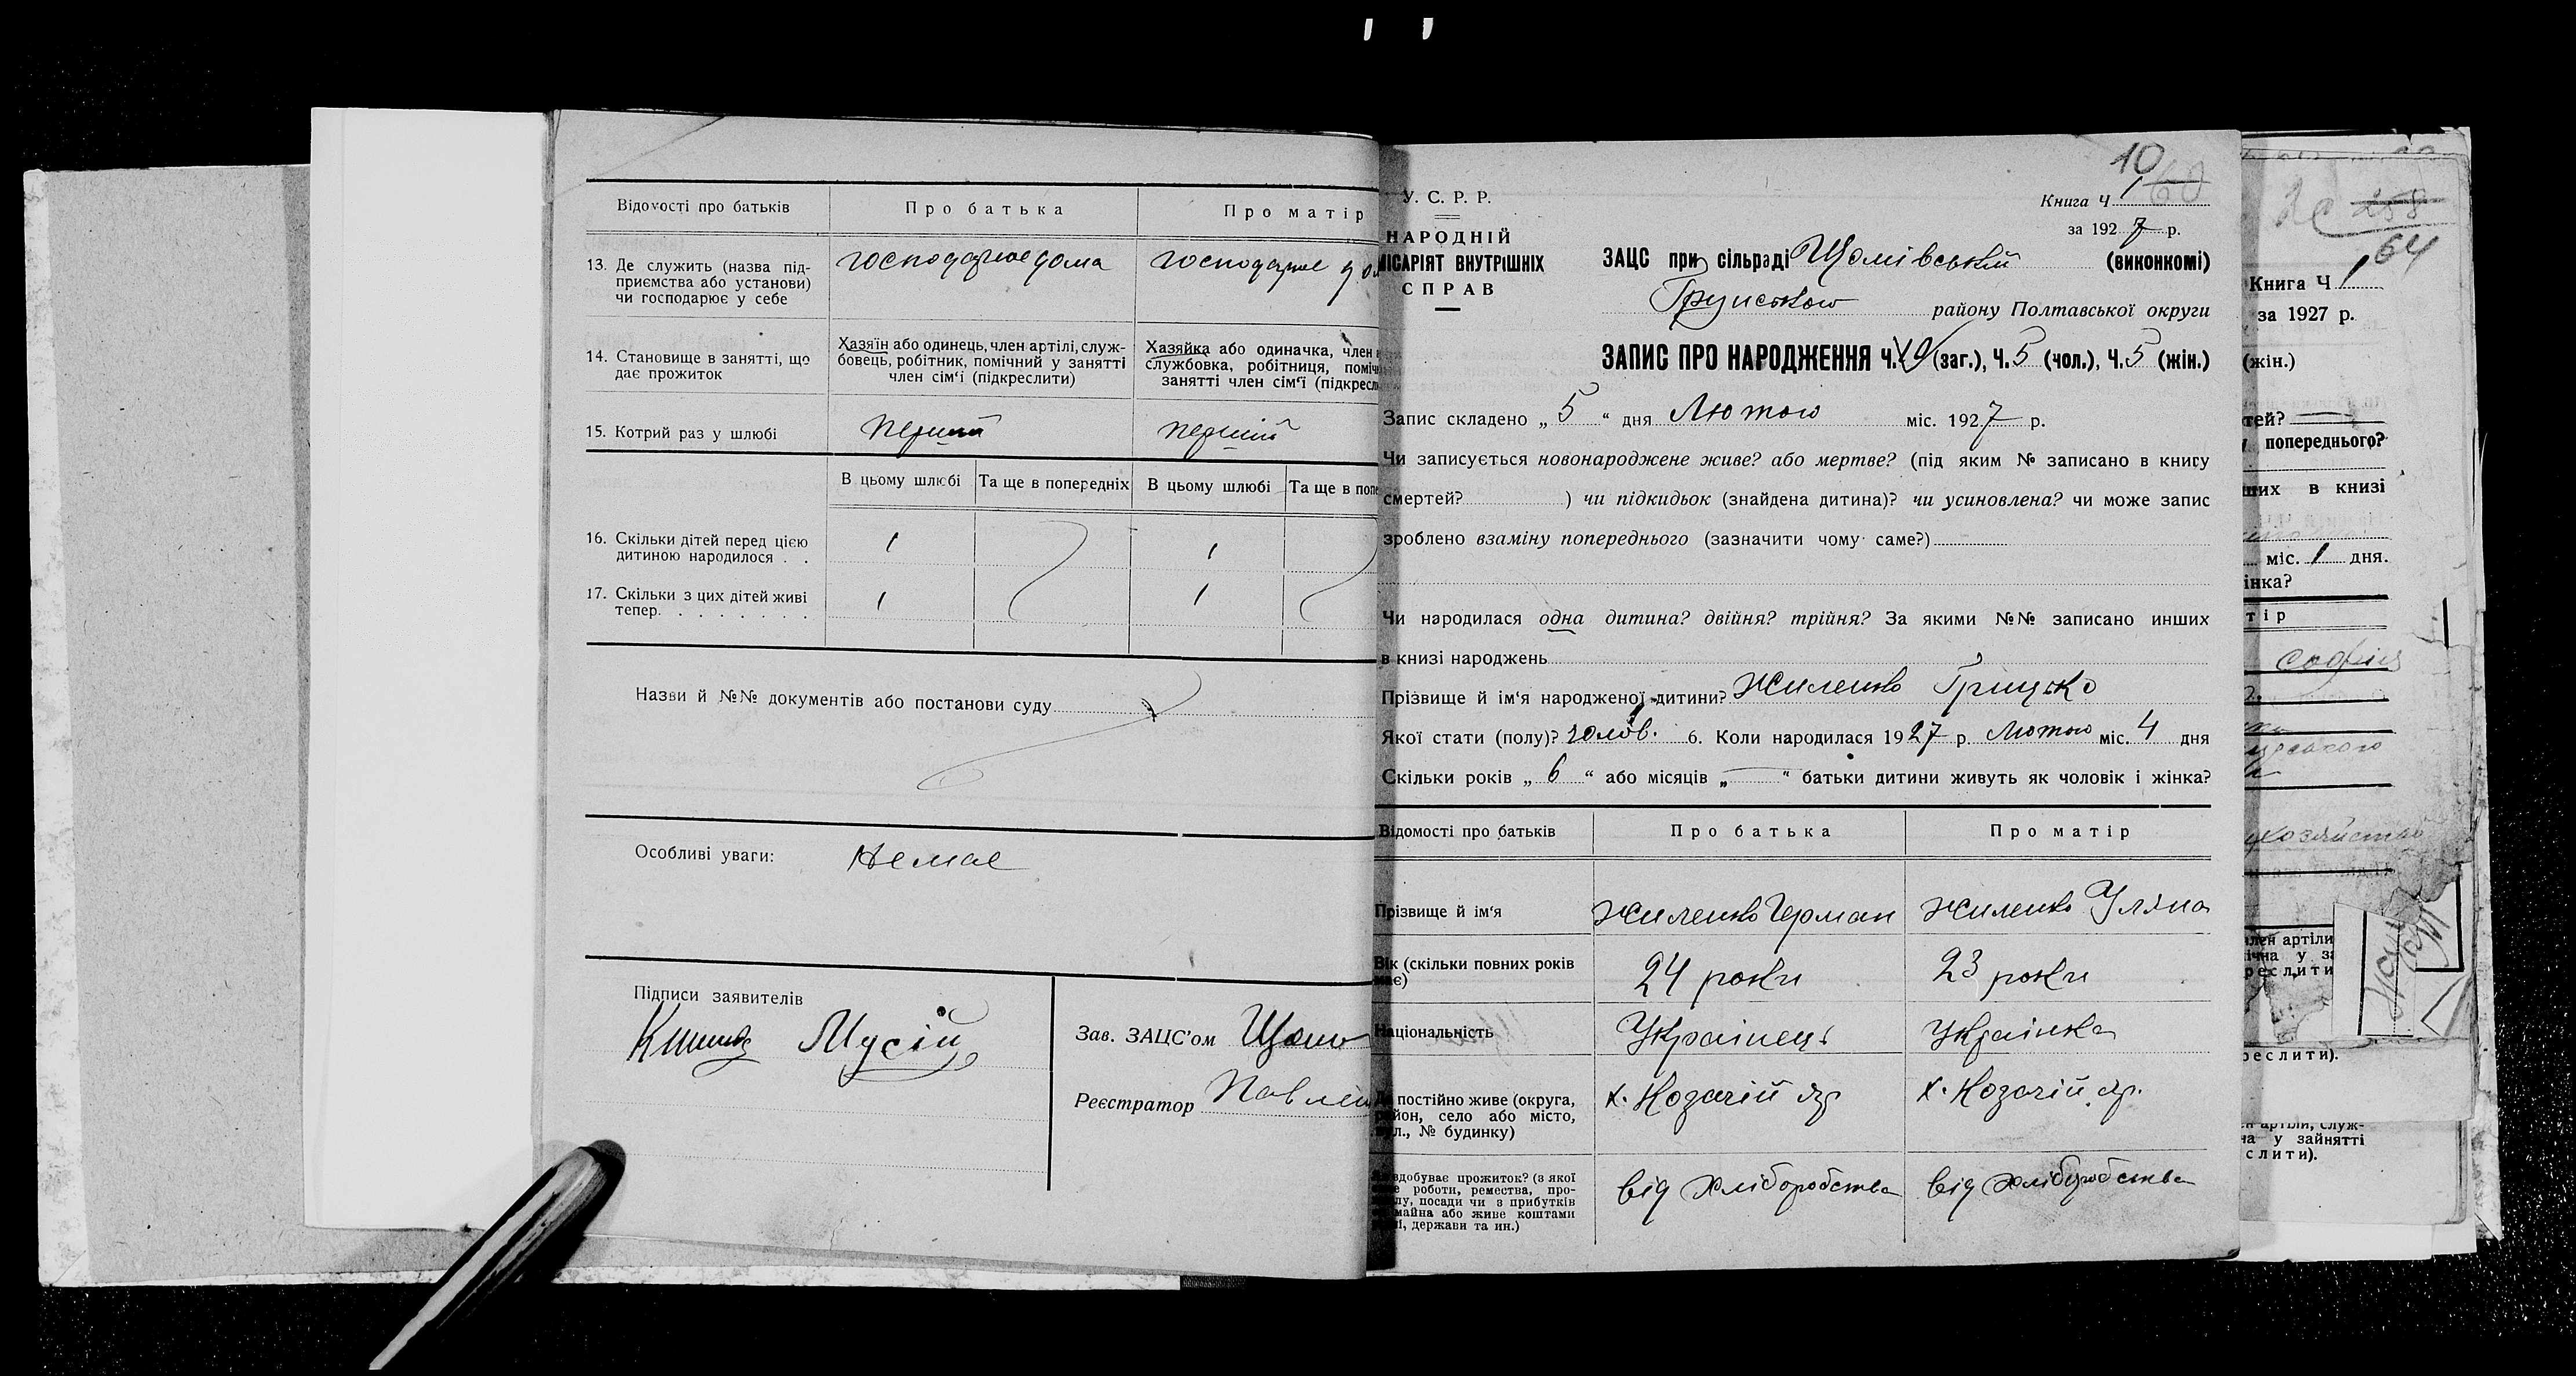 Відомості про батьків
Про батька
Про матір
13. Де служить (назва під-
приємства або установи)
чи господарює у себе
господарює дома
господарює
14. Становище в занятті, що
дає прожиток
Хазяїн або одинець, член артілі, служ-
бовець, робітник, помічний у занятті
член сім'ї (підкреслити)
Хазяйка або одиначка, член
службовка, робітниця,
занятті член сім'ї
15. Котрий раз у шлюбі
перший
перший
В цьому шлюбі
Та ще в попередніх
В цьому шлюбі
Та ще в
16. Скільки дітей перед цією
дитиною народилося . .
1
1
17. Скільки з цих дітей живі
тепер. . . . . . . .
1
1
Назви й №№ документів або постанови суду
Особливі уваги:
Немає
Підписи заявителів
Мусій
Зав. ЗАЦС'ом
Реєстратор
10
У. С. Р. Р.
НАРОДНІЙ
ВНУТРІШНІХ
СПРАВ
Книга Ч 1
за 1927 р.
ЗАЦС при сільраді (виконкомі)
району Полтавської округи
ЗАПИС ПРО НАРОДЖЕННЯ Ч. (заг.), Ч. 5 (чол.), Ч. 5 (жін.)
Запис складено „ 5 “ дня Лютого міс. 1927 р.
Чи записується новонароджене живе? або мертве? (під яким № записано в книгу
смертей? ) чи підкидьок (знайдена дитина)? чи усиновлена? чи може запис
зроблено взаміну попереднього (зазначити чому саме?)
Чи народилася одна дитина? двійня? трійня? За якими №№ записано инших
в книзі народжень
Прізвище й ім'я народженої дитини? Жиленко Грицько
Якої стати (полу)? чолов. 6. Коли народилася 1927 р. Лютого міс. 4 дня
Скільки років „ 6 “ або місяців „ — “ батьки дитини живуть як чоловік і жінка?
Відомості про батьків
Про батька
Про матір
Прізвище й ім'я
Жиленко Герман
Жиленко Уляна
Вік (скільки повних років
24 роки
23 роки
Національність
Українець
Українка
постійно живе (округа,
село або місто,
№ будинку)
х. Козачій яр
х. Козачій яр.
здобуває прожиток? (з якої
роботи, ремества, про-
посади чи з прибутків
майна або живе коштами
держави та ин.)
від хліборобства
від хліборобства
258
64
Книга Ч 1
за 1927 р.
(жін.)
попереднього?
в книзі
міс. 1 дня.
Софія
артіли
у зайнятті